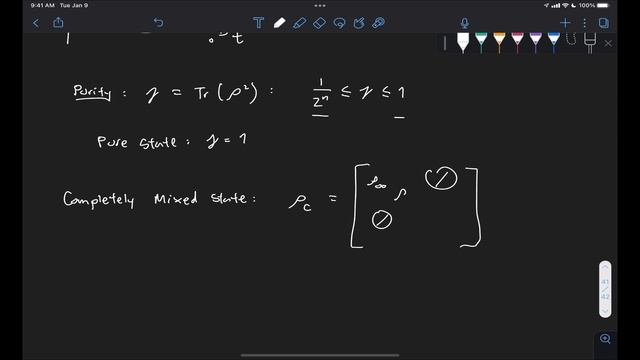 9:41 AM Tue Jan 9
100%
Purity : γ = Tr ( ρ² ) : 1/2ⁿ ≤ γ ≤ 1
Pure State : γ = 1
Completely Mixed State : ρ_c = [ ρ₀₀ ρ ∅ ∅ ]
41
42